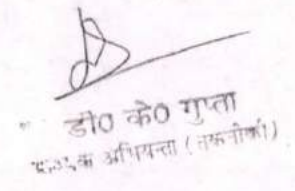 डी० के० गुप्ता
अभियन्ता (तकनीकी)